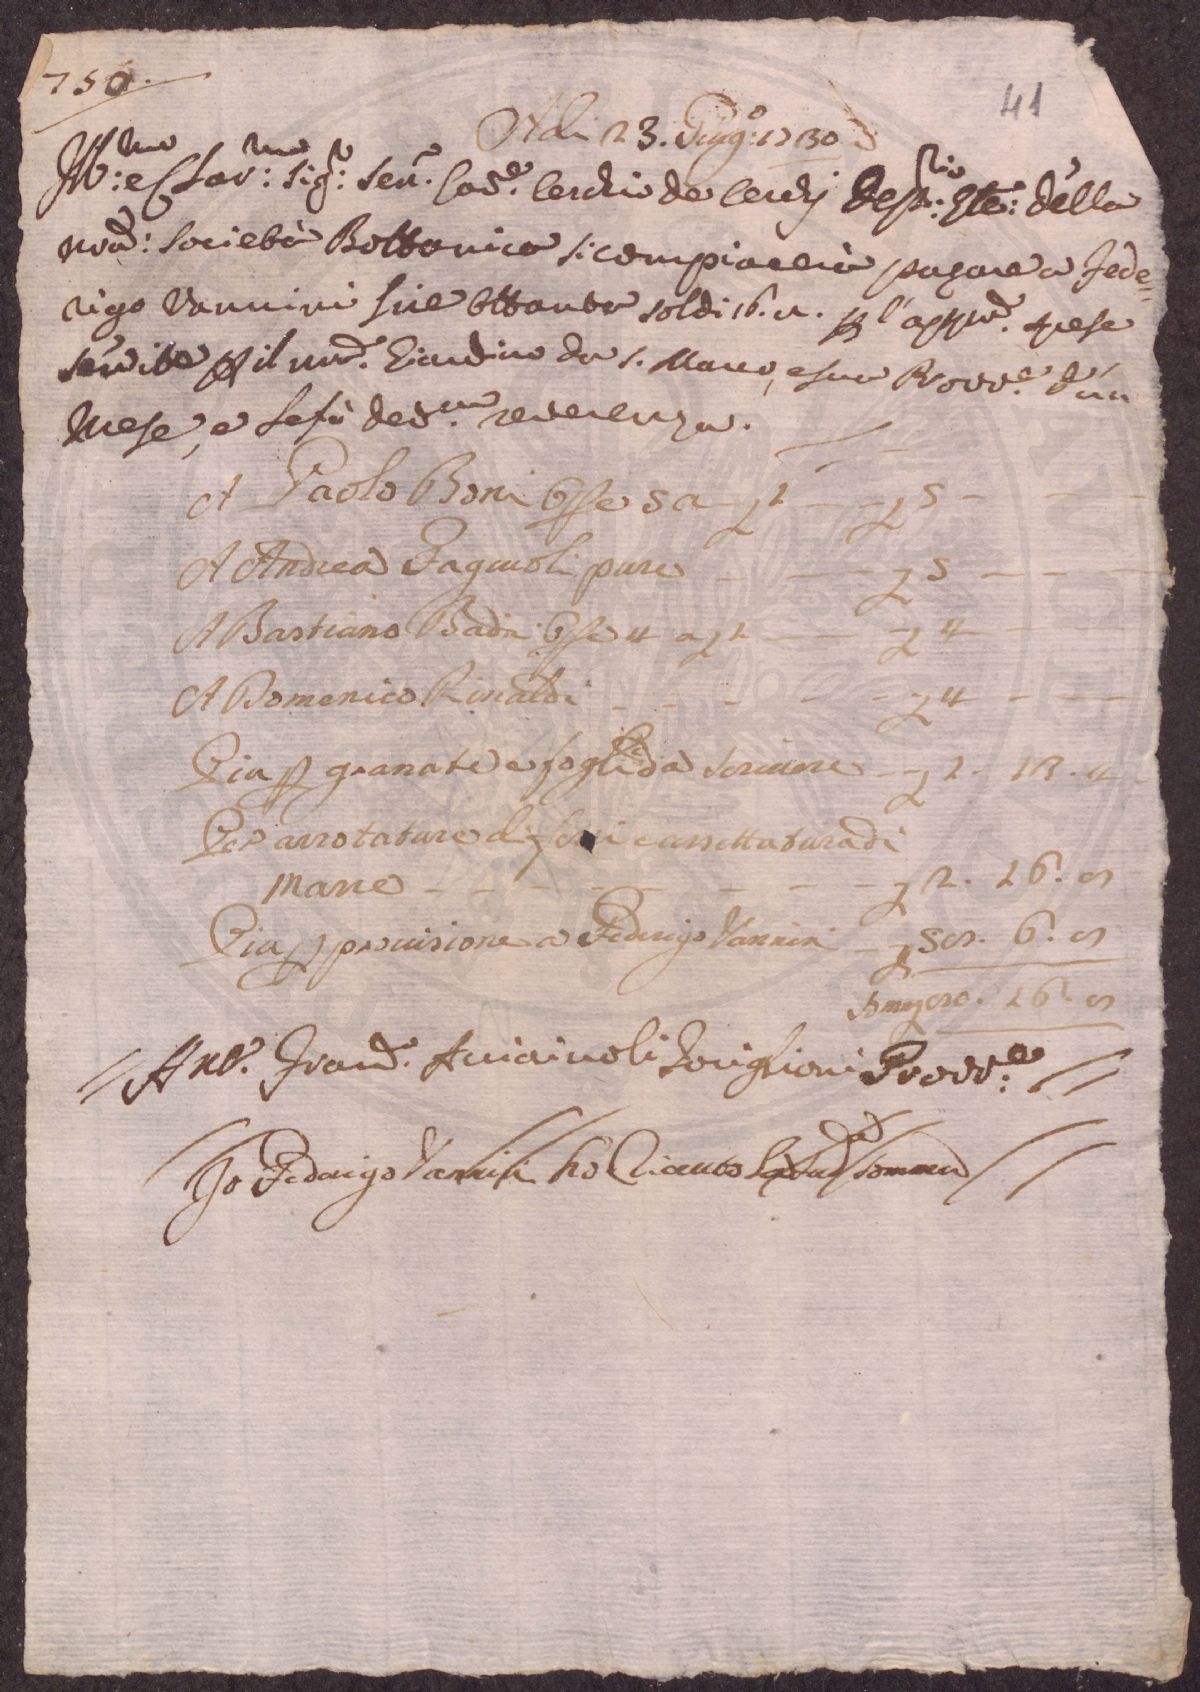 750.
41
Adi 23. Giug.o 1730
Ill:mo e Clar:mo Sig:r Sen.r Cav.e Cerchio de Cerchj Dep:rio Gle: della
nrã: Società Bottanica si compiacerà pagare a Fede=
rigo Vannini Lire Ottanta soldi 16. a. p l'appõ. spese
servite p il nrõ. Giardino da S. Marco, e sua Provv.e d'un
Mese, e le fò dev.ma reverenza.
A Paolo Boni Opere 5 a £ 1 — £ 5 —
A Andrea Fagnoli pure — £ 5 —
A Bastiano Badii Opere 4 a £ 1 — £ 4 —
A Domenico Rinaldi — £ 4 —
E piu p granate e fogli da scrivere — £ 1. 13. 4
Per arrotature di ferri e assettatura di
marre — £ 2. 16. 8
E piu p provisione a Federigo Vannini £ 58. 6. 8
£ 80. 16. 8
Ant.o Franc. Acciaiuoli Toriglioni Provv:e
Io Federigo Vannini ho riceuto la sud.a somma